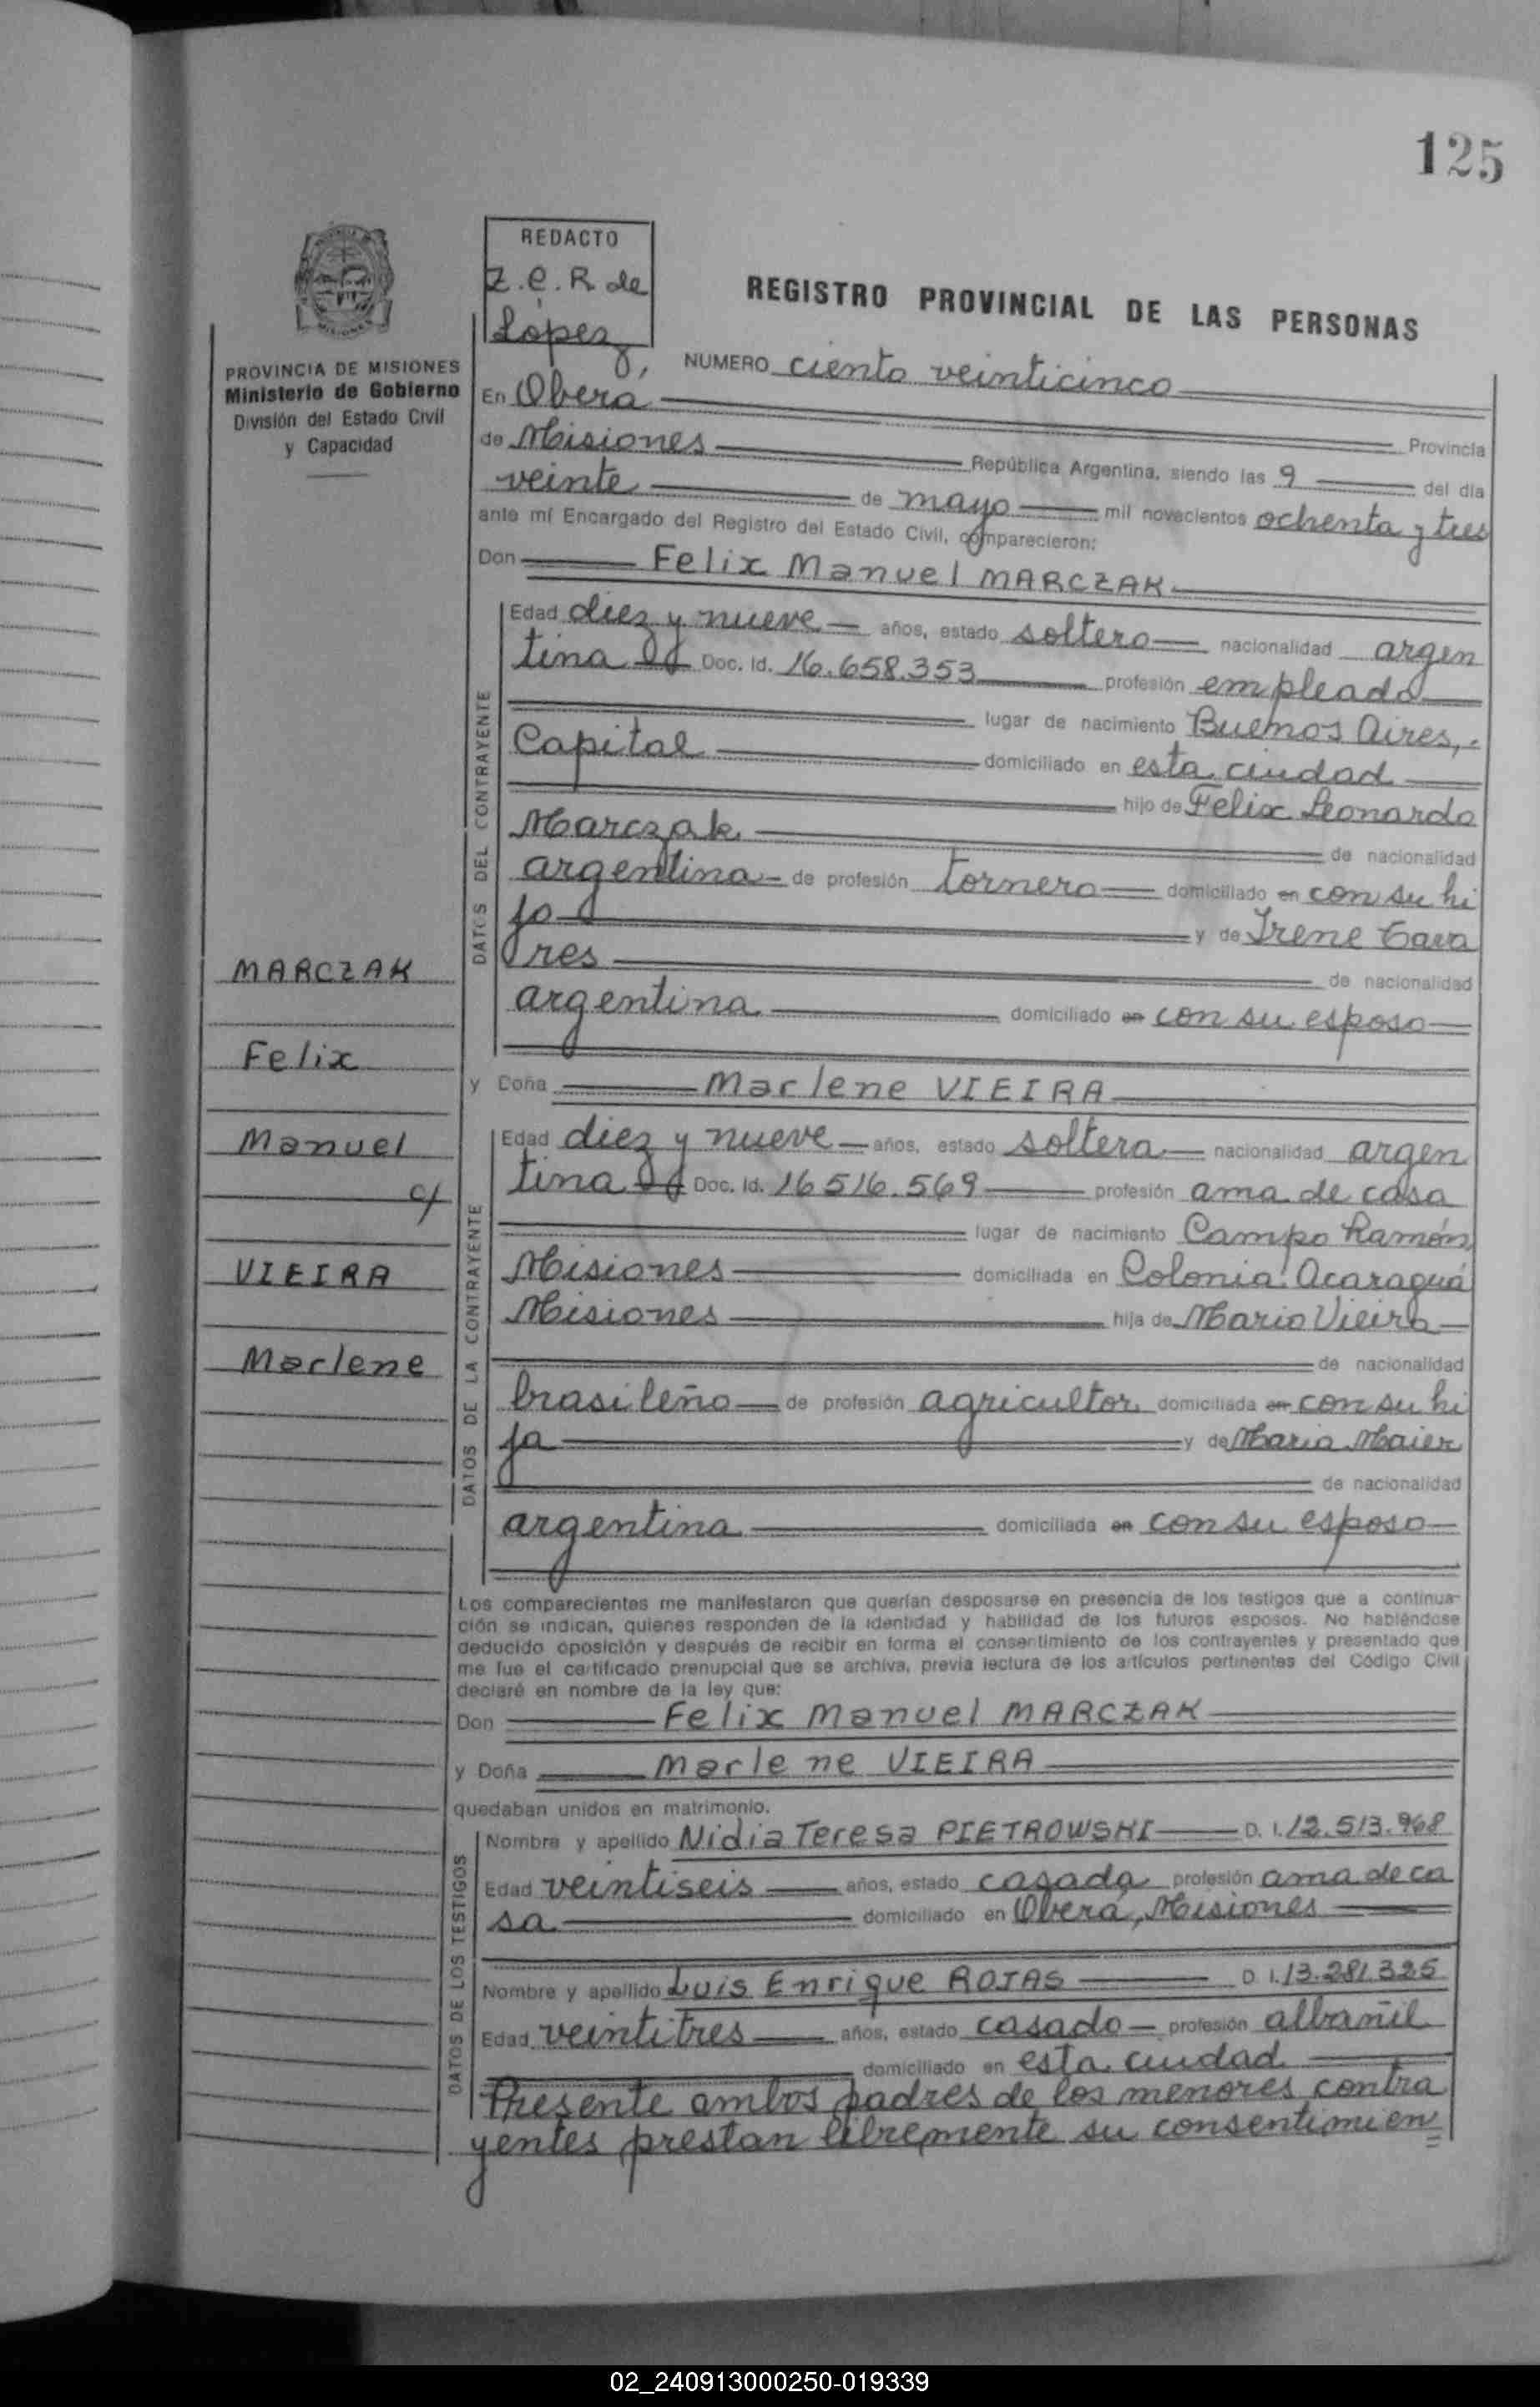 125
REDACTO
Z.C.R de
López
REGISTRO PROVINCIAL DE LAS PERSONAS
PROVINCIA DE MISIONES
Ministerio de Gobierno
División del Estado Civil
y Capacidad
NUMERO ciento veinticinco
En Obera Provincia
de Misiones República Argentina, siendo las 9 del día
veinte de mayo mil novecientos ochenta y tres
ante mí Encargado del Registro del Estado Civil, comparecieron:
Don Felix Manuel MARCZAK
DATOS DEL CONTRAYENTE
Edad diez y nueve años, estado soltero nacionalidad argen
tina Doc. Id. 16.658.353 profesión empleado
lugar de nacimiento Buenos Aires,
Capital domiciliado en esta ciudad
hijo de Felix Leonardo
Marczak de nacionalidad
argentina de profesión tornero domiciliado en con su hi
jo y de Irene
res de nacionalidad
argentina domiciliado en con su esposo
MARCZAK
Felix
Manuel
c/
VIEIRA
Marlene
y Doña Marlene VIEIRA
DATOS DE LA CONTRAYENTE
Edad diez y nueve años, estado soltera nacionalidad argen
tina Doc. Id. 16516.569 profesión ama de casa
lugar de nacimiento Campo Ramón
Misiones domiciliada en Colonia Acaraguá
Misiones hija de Mario Vieira
de nacionalidad
brasileño de profesión agricultor domiciliada en con su hi
ja y de Maria Maier
de nacionalidad
argentina domiciliada en con su esposo
Los comparecientes me manifestaron que querían desposarse en presencia de los testigos que a continua-
ción se indican, quienes responden de la identidad y habilidad de los futuros esposos. No habiéndose
deducido oposición y después de recibir en forma el consentimiento de los contrayentes y presentado que
me fue el certificado prenupcial que se archiva, previa lectura de los artículos pertinentes del Código Civil
declaré en nombre de la ley que:
Don Felix Manuel MARCZAK
y Doña Marlene VIEIRA
quedaban unidos en matrimonio.
DATOS DE LOS TESTIGOS
Nombre y apellido Nidia Teresa PIETROWSKI D. I. 12.513.968
Edad veintiseis años, estado casada profesión ama de ca
sa domiciliado en Oberá, Misiones
Nombre y apellido Luis Enrique ROJAS D. I. 13.281.325
Edad veintitres años, estado casado profesión albañil
domiciliado en esta ciudad
Presente ambos padres de los menores contra
yentes prestan libremente su consentimien
02_240913000250-019339